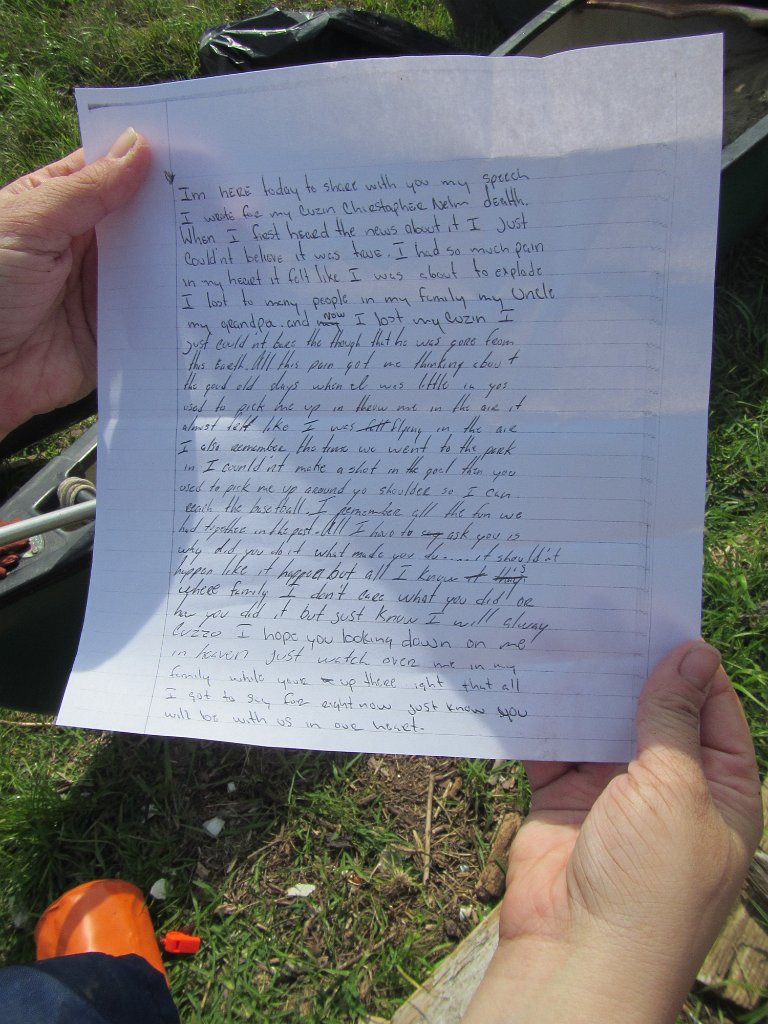 Im HERE today to share with you my speech
I wrote for my Cuzin Chirstopher Nelm death.
When I first heard the news about it I Just
Could'nt believe it was true. I had so much pain
in my heart it felt like I was about to explode
I lost to many people in my family my Uncle
my grandpa. and now I lost my Cuzin I
just could'nt bare the though that he was gone from
this Earth. All this pain got me thinking about
the good old days when I was little in yos
used to pick me up in throw me in the air it
almost felt like I was felt flying in the air
I also remember the time we went to the park
in I could'nt make a shot in the goal then you
used to pick me up around yo shoulder so I can
reach the basetball. I remember all the fun we
had together in the past. All I have to say ask you is
why did you do it what made you do.....it should'nt
happen like it happen but all I know it is
where family I don't care what you did or
how you did it but just know I will alway
Cuzzo I hope you looking down on me
in heaven just watch over me in my
family while your up there ight that all
I got to say for right now just know you
will be with us in our heart.